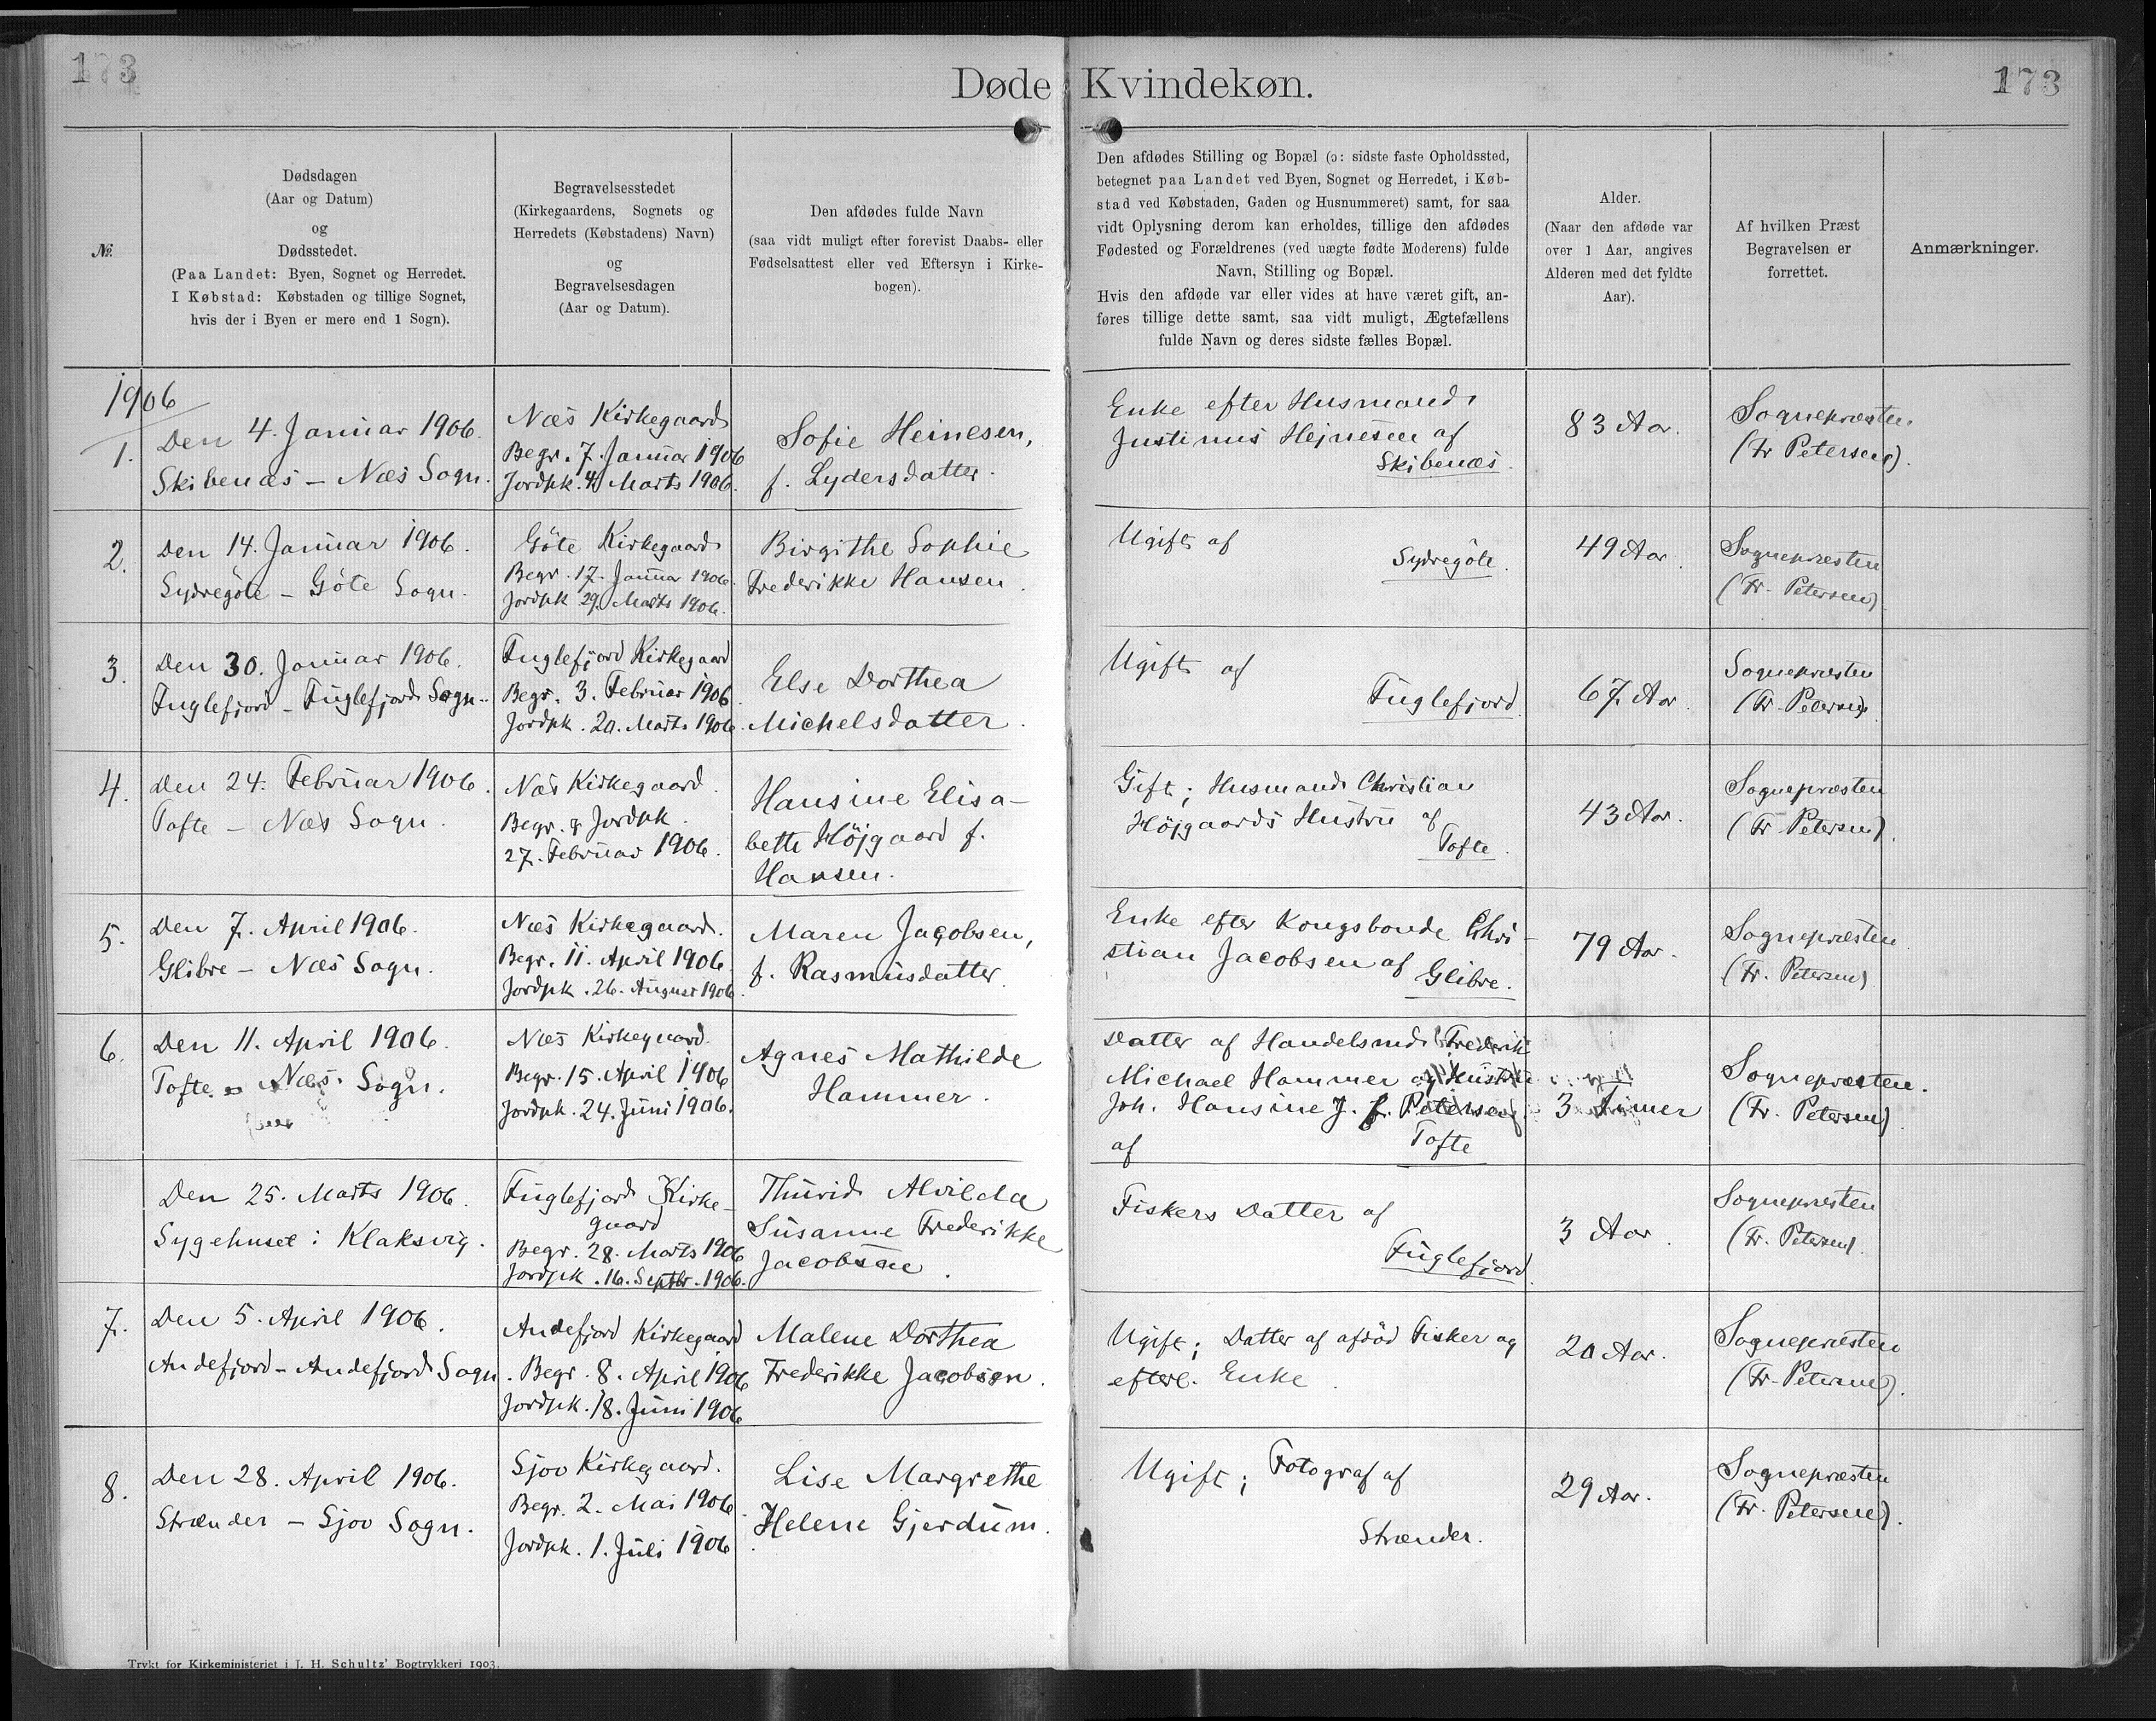 173
Døde Kvindekøn.
173
№
Dødsdagen
(Aar og Datum)
og
Dødsstedet.
(Paa Landet: Byen, Sognet og Herredet.
I Købstad: Købstaden og tillige Sognet,
hvis der i Byen er mere end 1 Sogn).
Begravelsesstedet
(Kirkegaardens, Sognets og
Herredets (Købstadens) Navn)
og
Begravelsesdagen
(Aar og Datum).
Den afdødes fulde Navn
(saa vidt muligt efter forevist Daabs- eller
Fødselsattest eller ved Eftersyn i Kirke-
bogen).
Den afdødes Stilling og Bopæl (ɔ: sidste faste Opholdssted,
betegnet paa Landet ved Byen, Sognet og Herredet, i Køb-
stad ved Købstaden, Gaden og Husnummeret) samt, for saa
vidt Oplysning derom kan erholdes, tillige den afdødes
Fødested og Forældrenes (ved uægte fødte Moderens) fulde
Navn, Stilling og Bopæl.
Hvis den afdøde var eller vides at have været gift, an-
føres tillige dette samt, saa vidt muligt, Ægtefællens
fulde Navn og deres sidste fælles Bopæl.
Alder.
(Naar den afdøde var
over 1 Aar, angives
Alderen med det fyldte
Aar).
Af hvilken Præst
Begravelsen er
forrettet.
Anmærkninger.
1906
1.
Den 4. Januar 1906.
Skibenæs – Næs Sogn.
Næs Kirkegaard
Begr. 7. Januar 1906
Jordpk. 4 Marts 1906.
Sofie Heinesen,
f. Lydersdatter.
Enke efter Husmand
Justinus Hejnesen af
Skibenæs.
83 Aar.
Sognepræsten
(Fr Petersen).
2.
Den 14. Januar 1906.
Sydregöte – Göte Sogn.
Göte Kirkegaard
Begr. 17. Januar 1906.
Jordpk 29. Marts 1906.
Birgithe Sophie
Frederikke Hansen.
Ugift af
Sydregöte.
49 Aar.
Sognepræsten
(Fr. Petersen).
3.
Den 30. Januar 1906.
Fuglefjord – Fuglefjord Sogn.
Fuglefjord Kirkegaard
Begr. 3. Februar 1906.
Jordpk. 20. Marts 1906.
Else Dorthea
Michelsdatter.
Ugift af
Fuglefjord.
67 Aar.
Sognepræsten
(Fr. Petersen).
4.
Den 24. Februar 1906.
Tofte – Næs Sogn.
Næs Kirkegaard.
Begr. & Jordpk.
27. Februar 1906.
Hansine Elisa-
bette Höjgaard f.
Hansen.
Gift; Husmand Christian
Höjgaards Hustru af
Tofte.
43 Aar.
Sognepræsten
(Fr Petersen).
5.
Den 7. April 1906.
Glibre – Næs Sogn.
Næs Kirkegaard.
Begr. 11. April 1906.
Jordpk. 26. August 1906.
Maren Jacobsen,
f. Rasmusdatter.
Enke efter Kongsbonde Chri-
stian Jacobsen af Glibre.
79 Aar.
Sognepræsten.
(Fr. Petersen).
6.
Den 11. April 1906.
Tofte – Næs. Sogn.
Næs Kirkegaard.
Begr. 15. April 1906
Jordpk. 24. Juni 1906.
Agnes Mathilde
Hammer.
Datter af Handelsmd. Frederik
Michael Hammer og Hustru
Joh. Hansine J. f. Petersen
af Tofte
3 Timer
Sognepræsten.
(Fr. Petersen).
Den 25. Marts 1906.
Sygehuset i Klaksvig.
Fuglefjord Kirke-
gaard
Begr. 28. Marts 1906
Jordpk. 16. Septbr. 1906.
Thurid Alvilda
Susanne Frederikke
Jacobsen.
Fiskers Datter af
Fuglefjord.
3 Aar.
Sognepræsten
(Fr. Petersen).
7.
Den 5. April 1906.
Andefjord – Andefjord Sogn.
Andefjord Kirkegaard
Begr. 8. April 1906
Jordpk. 18. Juni 1906.
Malene Dorthea
Frederikke Jacobsen.
Ugift; Datter af afdöd Fisker og
efterl. Enke.
20 Aar.
Sognepræsten
(Fr. Petersen).
8.
Den 28. April 1906.
Strænder – Sjov Sogn.
Sjov Kirkegaard.
Begr. 2. Mai 1906.
Jordpk. 1. Juli 1906.
Lise Margrethe
Helene Gjerdum.
Ugift; Fotograf af
Strænder.
29 Aar.
Sognepræsten
(Fr. Petersen).
Trykt for Kirkeministeriet i J. H. Schultz' Bogtrykkeri 1903.